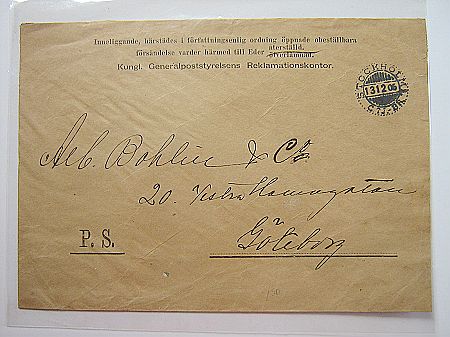 Inneliggande, härstädes i författningsenlig ordning öppnade obeställbara
försändelse varder härmed till Eder återställd.
öfverlämnad.
Kungl. Generalpoststyrelsens Reklamationskontor.
STOCKHOLM
13 12 05
Alb. Bohlin & Co
20. Vestra Hamngatan
P. S.
Göteborg